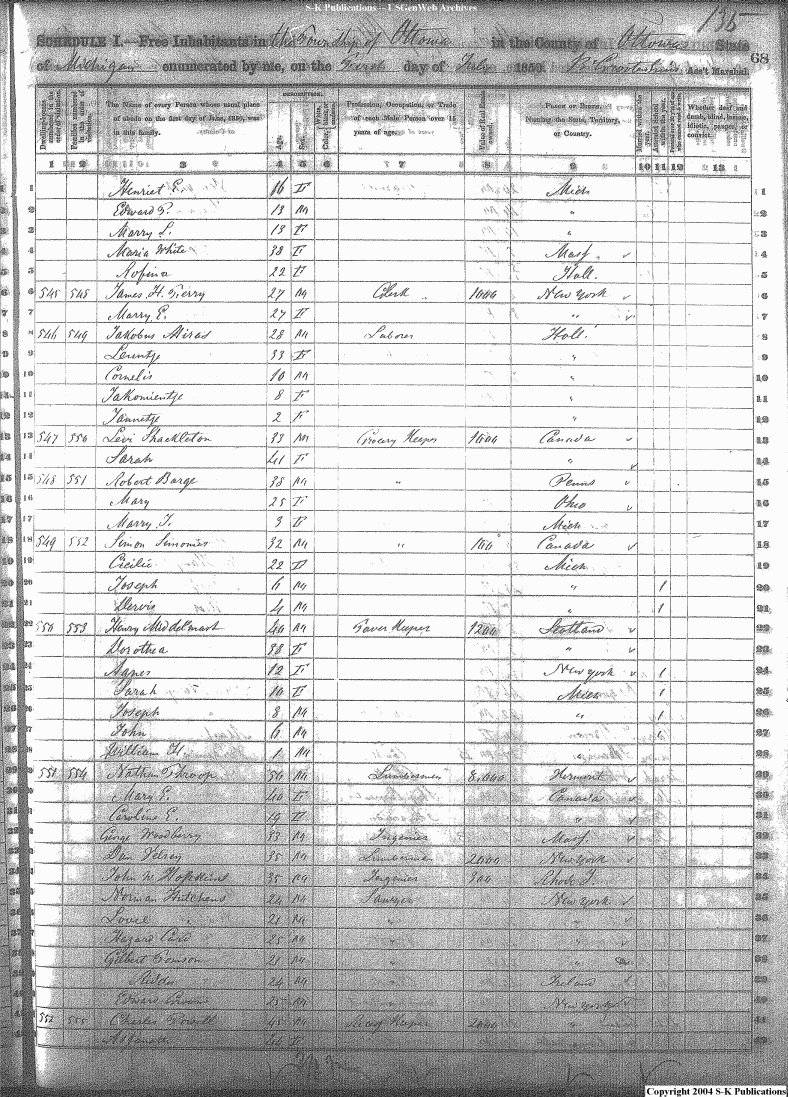 S-K Publications — USGenWeb Archives
135
SCHEDULE I.—Free Inhabitants in the Township of Ottowa in the County of Ottowa State
68
of Michigan enumerated by me, on the First day of July 1850. Ass't Marshal.
Dwelling-houses numbered in the order of visitation.
Families numbered in the order of visitation.
The Name of every Person whose usual place of abode on the first day of June, 1850, was in this family.
DESCRIPTION.
Age. Sex. Color,
Profession, Occupation, or Trade of each Male Person over 15 years of age.
Value of Real Estate owned.
PLACE OF BIRTH. Naming the State, Territory, or Country.
Married within the year.
Attended School within the year.
Whether deaf and dumb, blind, insane, idiotic, pauper, or convict.
1 2 3 4 5 6 7 8 9 10 11 12 13
1 Henriet E. 16 F Mich 1
2 Edward 13 M " 2
3 Marry L. 13 F " 3
4 Maria White 38 F Mass. 4
5 Rosina 22 F Holl. 5
6 545 548 James H. 27 M Clerk 1000 New York 6
7 Marry E. 27 F " 7
8 546 549 Jakobus 28 M Laborer Holl. 8
9 Leuntje 33 F " 9
10 Cornelis 10 M " 10
11 Jakomientje 8 F " 11
12 Jannetje 2 F " 12
13 547 550 Levi Shackleton 33 M Grocery Keeper 1600 Canada 13
14 Sarah 41 F " 14
15 548 551 Robert Barge 38 M " Penns 15
16 Mary 25 F Ohio 16
17 Marry J. 3 F Mich 17
18 549 552 Simon Simonies 32 M " 100 Canada 18
19 Cecilie 22 F Mich 19
20 Joseph 6 M " 1 20
21 Dervis 4 M " 1 21
22 550 553 Henry Middelmast 40 M Taver Keeper 1200 Scotland 22
23 Dorothea 38 F " 23
24 Agnes 12 F New york 1 24
25 Sarah 10 F Mich 1 25
26 Joseph 8 M " 1 26
27 John 6 M " 1 27
28 William H. 1 M " 28
29 551 554 Nathan Throop 50 M Lumberman 8,000 Vermont 29
30 Mary E. 40 F Canada 30
31 Caroline E. 19 F " 31
32 George Woodberry 33 M Ingenier Mass. 32
33 Dan 35 M Lumberman 2000 New York 33
34 John W Hopkins 35 M Ingenier 300 Rhode I. 34
35 Norman Hutchens 24 M Sawyer New york 35
36 21 M " " 36
37 Hazard Card 25 M " " 37
38 Gilbert 21 M " " 38
39 24 M " Ireland 39
40 Edward 25 M " New York 40
41 552 555 Charles 45 M Keeper 2000 " 41
42 44 F " 42
Copyright 2004 S-K Publications